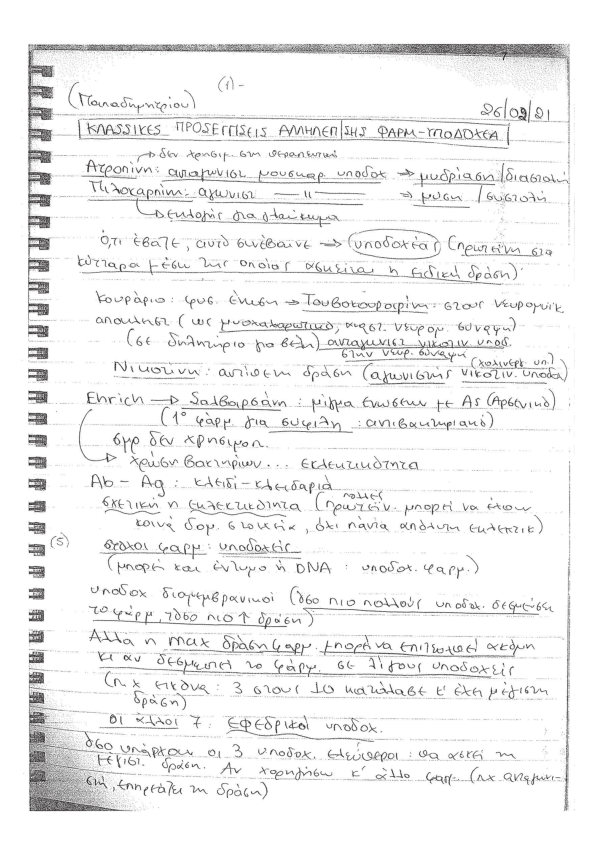 (1) -
(Παπαδημητρίου) 26/02/21
KΛASSIKES ΠΡΟSΕΓΓΙSΕΙS ΑΛΛΗΛΕΠ/SHS ΦΑΡΜ-ΥΠΟΔΟΧΕΑ
→ δεν χρησιμ. στη θεραπευτική
Ατροπίνη: ανταγωνιστ μουσκαρ υποδοχ → μυδρίαση/διαστολή
Πιλοκαρπίνη: αγωνιστ — 11 — → μύση /συστολή
→ εκλογής για γλαύκωμα
Ό,τι έβαζε, αυτό συνέβαινε → υποδοχέας (πρωτεΐνη στα
κύτταρα μέσω της οποίας ασκείται η ειδική δράση)
Κουράριο: φυσ. ένωση → Τουβοκουραρίνη: στους νευρομυϊκ
αποκλειστ (ως μυοχαλαρωτικό, νευρομ. σύναψη)
(σε δηλητήριο για βέλη) ανταγωνιστ νικοτιν υποδ.
στην νευρ. σύναψη (χολινεργ. υπ.)
Νικοτίνη: αντίθετη δράση (αγωνιστής νικοτιν. υποδοχ)
Ehrich → Σαλβαρσάνη: μίγμα ενώσεων με As (Αρσενικό)
(1° φάρμ για σύφιλη: αντιβακτηριακό)
σήμερ δεν χρησιμοπ.
→ χρώση βακτηρίων... εκλεκτικότητα
Ab - Ag: κλειδί-κλειδαριά
σχετική η εκλεκτικότητα (πολλές πρωτεΐν. μπορεί να έχουν
κοινά δομ. στοιχεία, όχι πάντα απόλυτη εκλεκτικ)
(S) στόχοι φαρμ: υποδοχείς
(μπορεί και ένζυμο ή DNA: υποδοχ. φαρμ.)
υποδοχ διαμεμβρανικοί (όσο πιο πολλούς υποδοχ. δεσμεύσει
το φάρμ, τόσο πιο ↑ δράση)
Αλλά η max δράση φαρμ. μπορεί να επιτευχθεί ακόμη
κι αν δεσμευτεί το φάρμ. σε λίγους υποδοχείς
(π.χ εικόνα: 3 στους 10 κατάλαβε κ' έχει μέγιστη
δράση)
οι άλλοι 7: εφεδρικοί υποδοχ.
όσο υπάρχουν οι 3 υποδοχ. ελεύθεροι: θα ασκεί τη
μέγιστ. δράση. Αν χορηγήσω κ' άλλο φαρμ. (πχ ανταγωνι-
στή, επηρεάζει τη δράση)